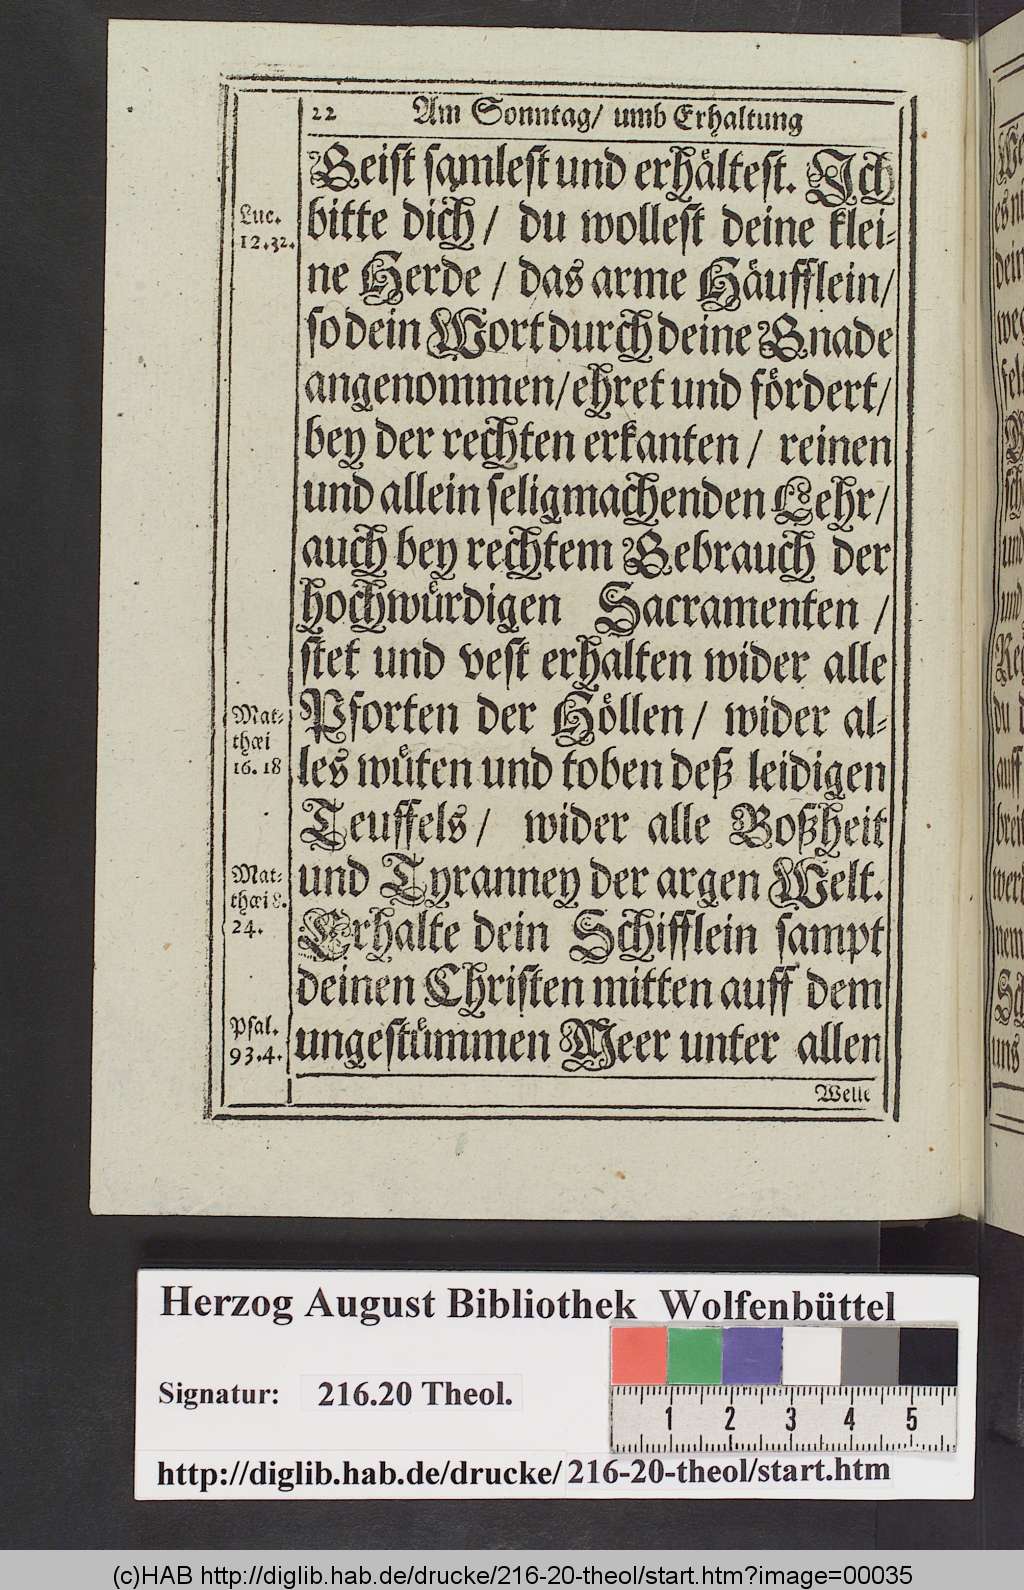 22 Am Sonntag/ umb Erhaltung
Geist samlest und erhältest. Ich
bitte dich/ du wollest deine klei-
ne Herde/ das arme Häufflein/
so dein Wort durch deine Gnade
angenommen/ ehret und fördert/
bey der rechten erkanten/ reinen
und allein seligmachenden Lehr/
auch bey rechtem Gebrauch der
hochwürdigen Sacramenten/
stet und vest erhalten wider alle
Pforten der Höllen/ wider al-
les wüten und toben deß leidigen
Teuffels/ wider alle Boßheit
und Tyranney der argen Welt.
Erhalte dein Schifflein sampt
deinen Christen mitten auff dem
ungestümmen Meer unter allen
Welle
Luc.
12.32.
Mat-
thæi
16.18
Mat-
thæi 8.
24.
Psal.
93.4.
Herzog August Bibliothek Wolfenbüttel
Signatur: 216.20 Theol.
1 2 3 4 5
http://diglib.hab.de/drucke/216-20-theol/start.htm
(c)HAB http://diglib.hab.de/drucke/216-20-theol/start.htm?image=00035